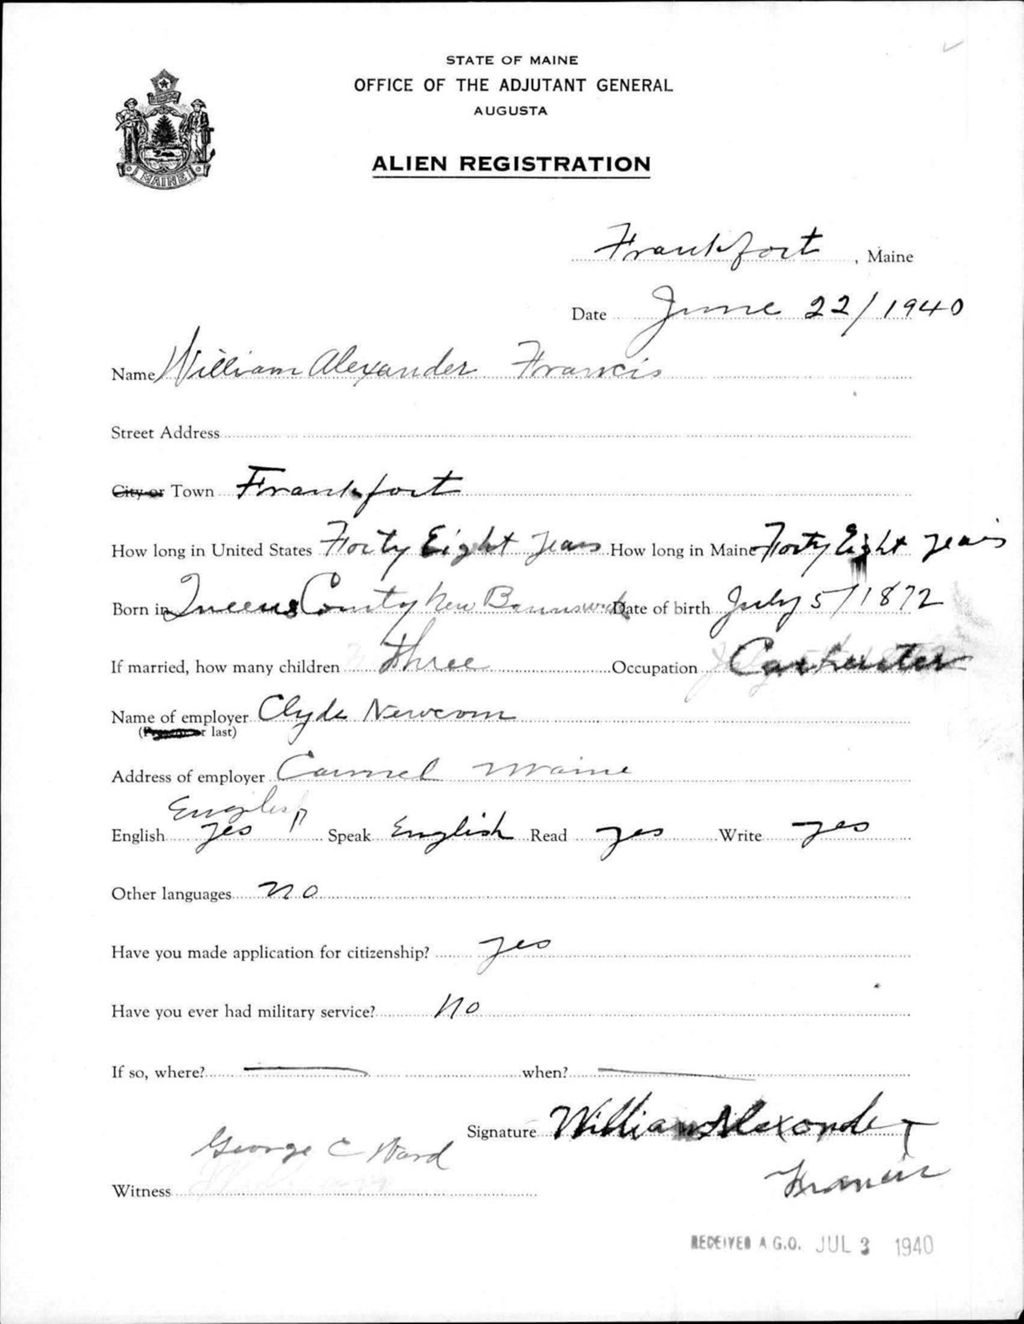 STATE OF MAINE
OFFICE OF THE ADJUTANT GENERAL
AUGUSTA
ALIEN REGISTRATION
MAINE
Frankfort, Maine
Date June 22/1940
Name William Alexander Francis
Street Address
City or Town Frankfort
How long in United States Forty Eight years How long in Maine Forty Eight years
Born in Queens County New Brunswick Date of birth July 5/1872
If married, how many children Three Occupation Carpenter
Name of employer Clyde Newcom
(Present or last)
Address of employer Carmel Maine
English
English yes Speak English Read yes Write yes
Other languages no
Have you made application for citizenship? yes
Have you ever had military service? No
If so, where? when?
Signature William Alexander
Francis
George C Ward
Witness
RECEIVED A.G.O. JUL 3 1940